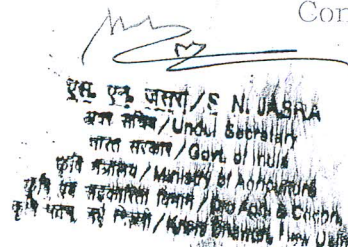 Con
एस. एन. जसरा / S. N. JASRA
अवर सचिव / Under Secretary
भारत सरकार / Govt. of India
कृषि मंत्रालय / Ministry of Agriculture
कृषि एवं सहकारिता विभाग /
कृषि भवन, नई दिल्ली / Krishi Bhawan, New Delhi